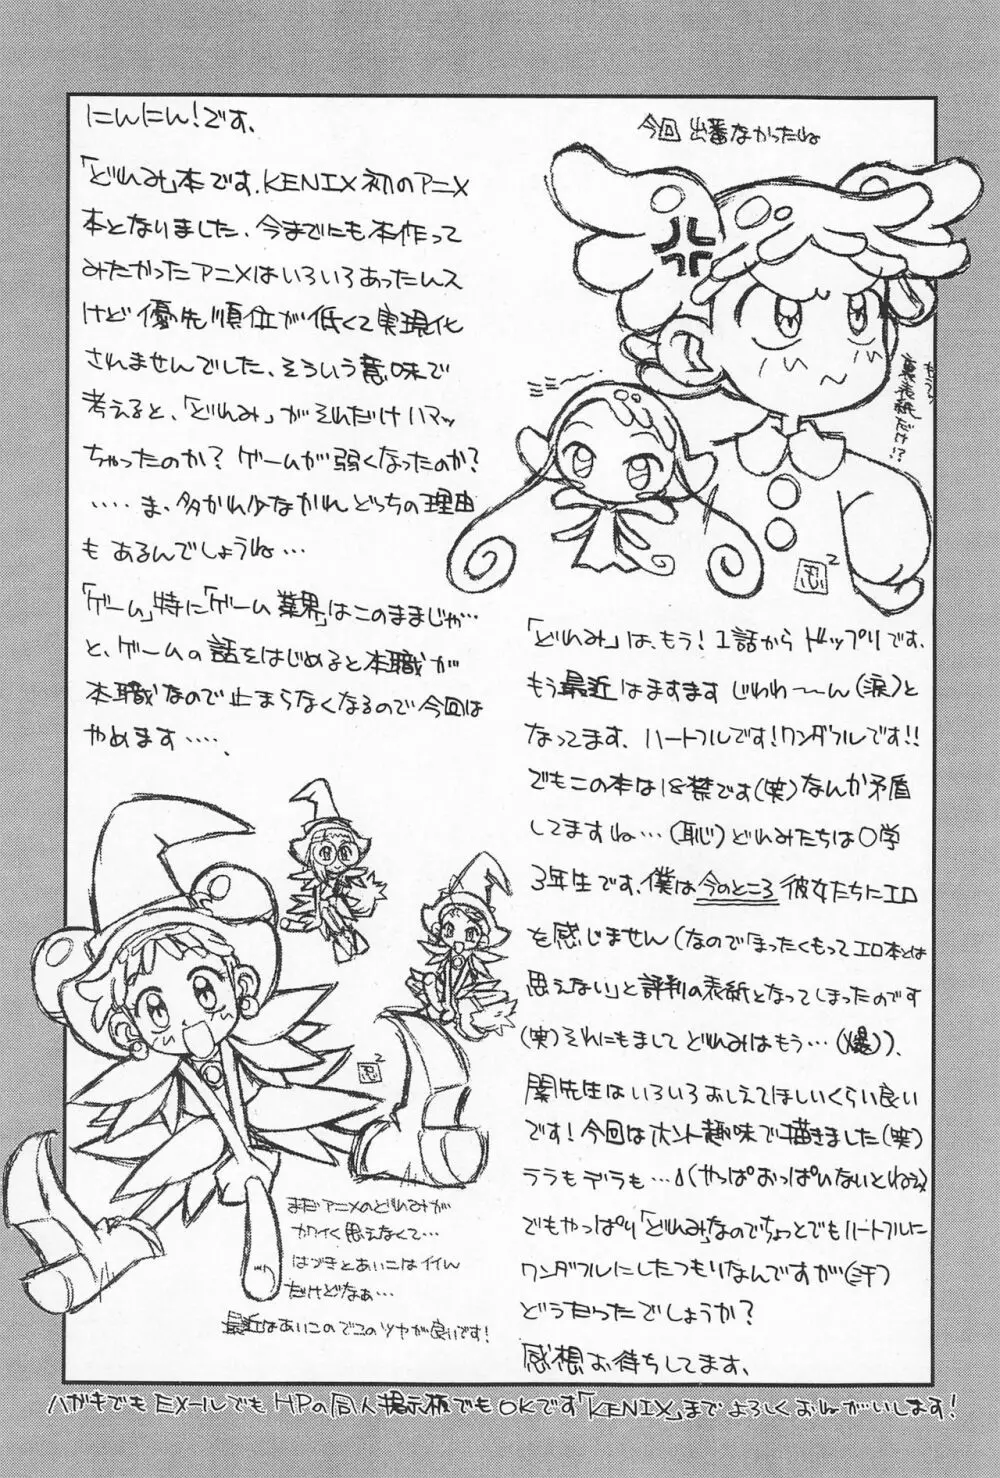 にんにん!です、
「どれみ」本です、KENIX初のアニメ
本となりました、今までにも本作って
みたかったアニメはいろいろあったんスけど優先順位が低くて実現化
されませんでした、そういう意味で
考えると、「どれみ」がそれだけハマッ
ちゃったのか?ゲームが弱くなったのか?
‥‥ま、多かれ少なかれどっちの理由
もあるんでしょうね…
「ゲーム」特に「ゲーム業界」はこのままじゃ…
と、ゲームの話をはじめると本職が
本職なので止まらなくなるので今回は
やめます‥‥、
今回出番なかったね
もう、
裏表紙だけ!?
忍2
「どれみ」は、もう!1話からドップリです、
もう最近はますますじわわ〜ん(涙)と
なってます、ハートフルです!ワンダフルです!!
でもこの本は18禁です(笑)なんか矛盾
してますね…(恥)どれみたちは〇学
3年生です、僕は今のところ彼女たちにエロ
を感じません(なので「まったくもってエロ本とは
思えない」と評判の表紙となってしまったのです
(笑)それにもましてどれみはもう…(爆))、
関先生はいろいろおしえてほしいくらい良い
です!今回はホント趣味で描きました(笑)
ララもデラも…δ(やっぱおっぱいないとねぇ)
でもやっぱり「どれみ」なのでちょっとでもハートフルに
ワンダフルにしたつもりなんですが(汗)
どうだったでしょうか?
感想お待ちしてます、
忍2
まだアニメのどれみが
カワイく思えなくて…
はづきとあいこはイイん
だけどなぁ…
最近はあいこのでこのツヤが良いです!
ハガキでもEメールでもHPの同人掲示板でもOKです「KENIX」までよろしくおねがいします!